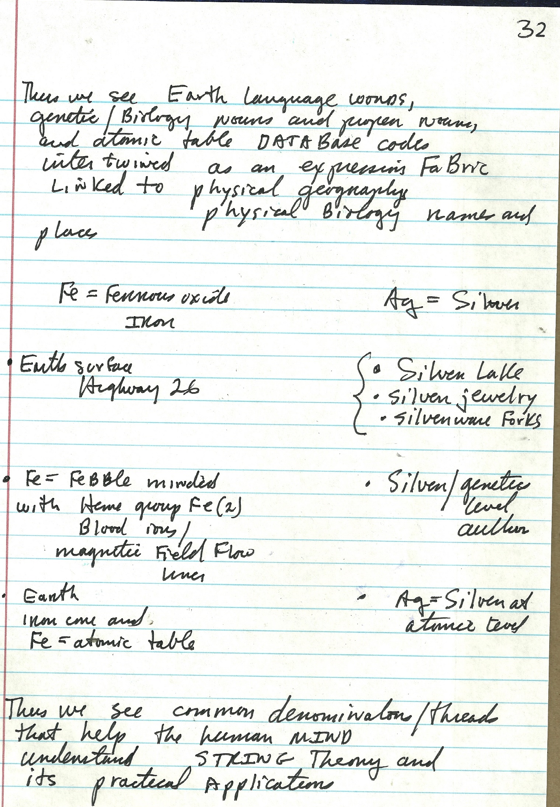 32
Thus we see Earth Language words,
genetic/Biology nouns and proper nouns,
and atomic table DATABase codes
intertwined as an expression FaBric
LiNKed to physical geography
physical Biology names and
places
Fe = Ferrous oxide
Iron
Ag = Silver
• Earth surface
Highway 26
• Silver Lake
• Silver jewelry
• Silverware Forks
• Fe = FeBBle minded
with Heme group Fe(2)
Blood ions/
magnetic Field Flow
lines
• Silver/genetic
level
author
• Earth
iron core and
Fe = atomic table
• Ag = Silver at
atomic level
Thus we see common denominators/threads
that help the human MIND
understand STRING Theory and
its practical Applications